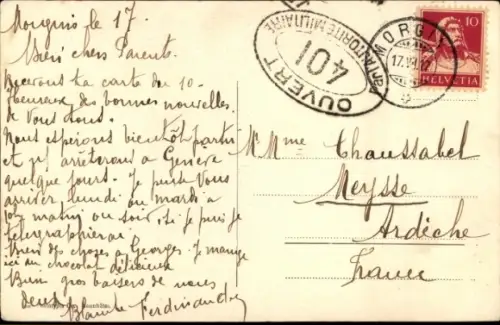 Morguis le 17.
Bien chers Parents.
Recevons ta carte du 10.
heureux des bonnes nouvelles
de vous tous.
Nous espérons bientôt partir
et ns arrêterons à Genève
quelque jours. Je pense vous
arriver lundi ou mardi à
matin ou soir. Si je puis je
télégrapherai.
des choses à Georges. Je mange
ici du chocolat délicieux
Bien gros baisers de nous
deux. Blanche Ferdinand
OUVERT
PAR AUTORITÉ MILITAIRE
401
MORG
17.
10
HELVETIA
M. Mme Chaussabel
Meysse
Ardèche
France